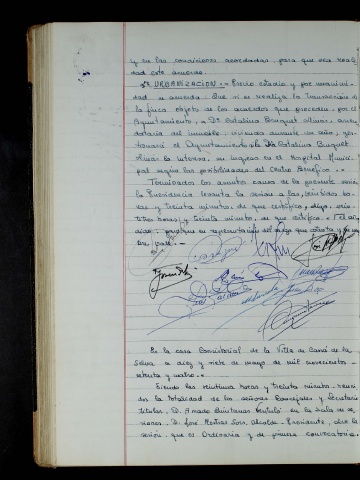 y en las condiciones acordadas, para que sea reali-
dad este acuerdo.
5º URGANIZACION.- Previo estudio y por unanimi-
dad se acuerda: Que si se realiza la transacción de
la finca objeto de los acuerdos que preceden, por el
Ayuntamiento, Dª Catalina Bouquet Olivas, arren-
dataria del inmueble, viviendo durante un año, ges-
tionará el Ayuntamiento si Dª Catalina Bouquet
le interesa, su ingreso en el Hospital Munici-
pal según las posibilidades del Centro Benéfico.-
Terminados los asuntos causa de la presente sesión
la Presidencia levanta la sesión a las veintidós ho-
ras y treinta minutos, de que certifico, digo, vein-
titrés horas y treinta minutos, de que certifico.-
En la casa Consistorial de la Villa de Cassá de la
Selva a diez y siete de mayo de mil novecientos
setenta y cuatro.-
Siendo las veintiuna horas y treinta minutos, reuni-
dos la totalidad de los señores Concejales y Secretario
titular, D. Amado Quintanas en la sala de se-
siones, D. José Alcalde-Presidente, abre la
sesión que es Ordinaria y de primera convocatoria.